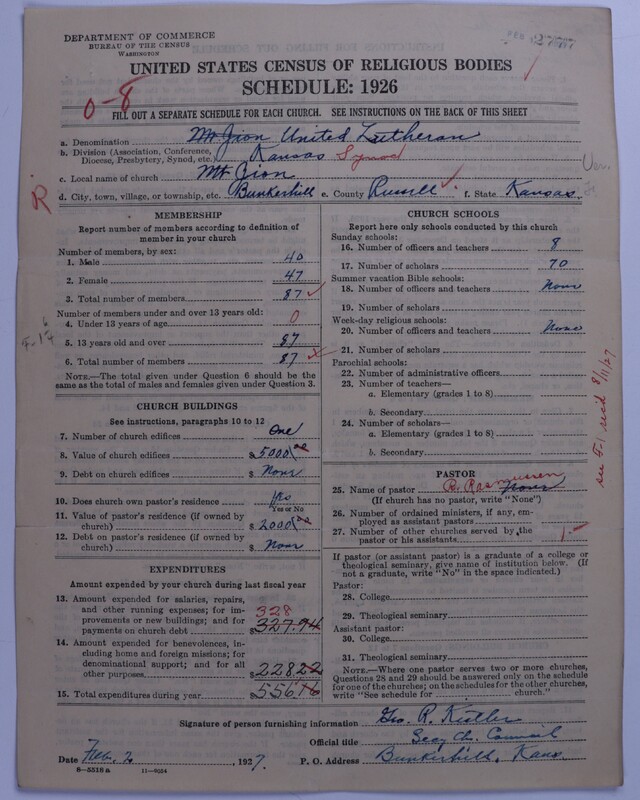 DEPARTMENT OF COMMERCE
BUREAU OF THE CENSUS
WASHINGTON
UNITED STATES CENSUS OF RELIGIOUS BODIES
SCHEDULE: 1926
0-8
FILL OUT A SEPARATE SCHEDULE FOR EACH CHURCH. SEE INSTRUCTIONS ON THE BACK OF THIS SHEET
a. Denomination Mt Zion United Lutheran
b. Division (Association, Conference, Diocese, Presbytery, Synod, etc.) Kansas Synod
c. Local name of church Mt Zion
d. City, town, village, or township, etc. Bunkerhill e. County Russell f. State Kansas
R
MEMBERSHIP
Report number of members according to definition of member in your church
Number of members, by sex:
1. Male 40
2. Female 47
3. Total number of members 87
Number of members under and over 13 years old:
4. Under 13 years of age 0
5. 13 years old and over 87
6. Total number of members 87
NOTE.—The total given under Question 6 should be the same as the total of males and females given under Question 3.
CHURCH BUILDINGS
See instructions, paragraphs 10 to 12
7. Number of church edifices One
8. Value of church edifices $ 5000 00
9. Debt on church edifices $ None
10. Does church own pastor's residence Yes
Yes or No
11. Value of pastor's residence (if owned by church) $ 2000 00
12. Debt on pastor's residence (if owned by church) $ None
EXPENDITURES
Amount expended by your church during last fiscal year
13. Amount expended for salaries, repairs, and other running expenses; for improvements or new buildings; and for payments on church debt 328 $ 327.94
14. Amount expended for benevolences, including home and foreign missions; for denominational support; and for all other purposes $ 228.22
15. Total expenditures during year $ 556.16
CHURCH SCHOOLS
Report here only schools conducted by this church
Sunday schools:
16. Number of officers and teachers 8
17. Number of scholars 70
Summer vacation Bible schools:
18. Number of officers and teachers None
19. Number of scholars
Week-day religious schools:
20. Number of officers and teachers None
21. Number of scholars
Parochial schools:
22. Number of administrative officers
23. Number of teachers—
a. Elementary (grades 1 to 8)
b. Secondary
24. Number of scholars—
a. Elementary (grades 1 to 8)
b. Secondary
see F-1 recd 8/11/27
PASTOR
25. Name of pastor R. Rasmussen None
(If church has no pastor, write "None")
26. Number of ordained ministers, if any, employed as assistant pastors
27. Number of other churches served by the pastor or his assistants 1
If pastor (or assistant pastor) is a graduate of a college or theological seminary, give name of institution below. (If not a graduate, write "No" in the space indicated.)
Pastor:
28. College
29. Theological seminary
Assistant pastor:
30. College
31. Theological seminary
NOTE.—Where one pastor serves two or more churches, Questions 28 and 29 should be answered only on the schedule for one of the churches; on the schedules for the other churches, write "See schedule for church."
Signature of person furnishing information Geo. R. Kistler
Official title Secy Ch. Council
Date Feb. 2, 1927. P. O. Address Bunkerhill, Kans.
8-5518 a 11-9024